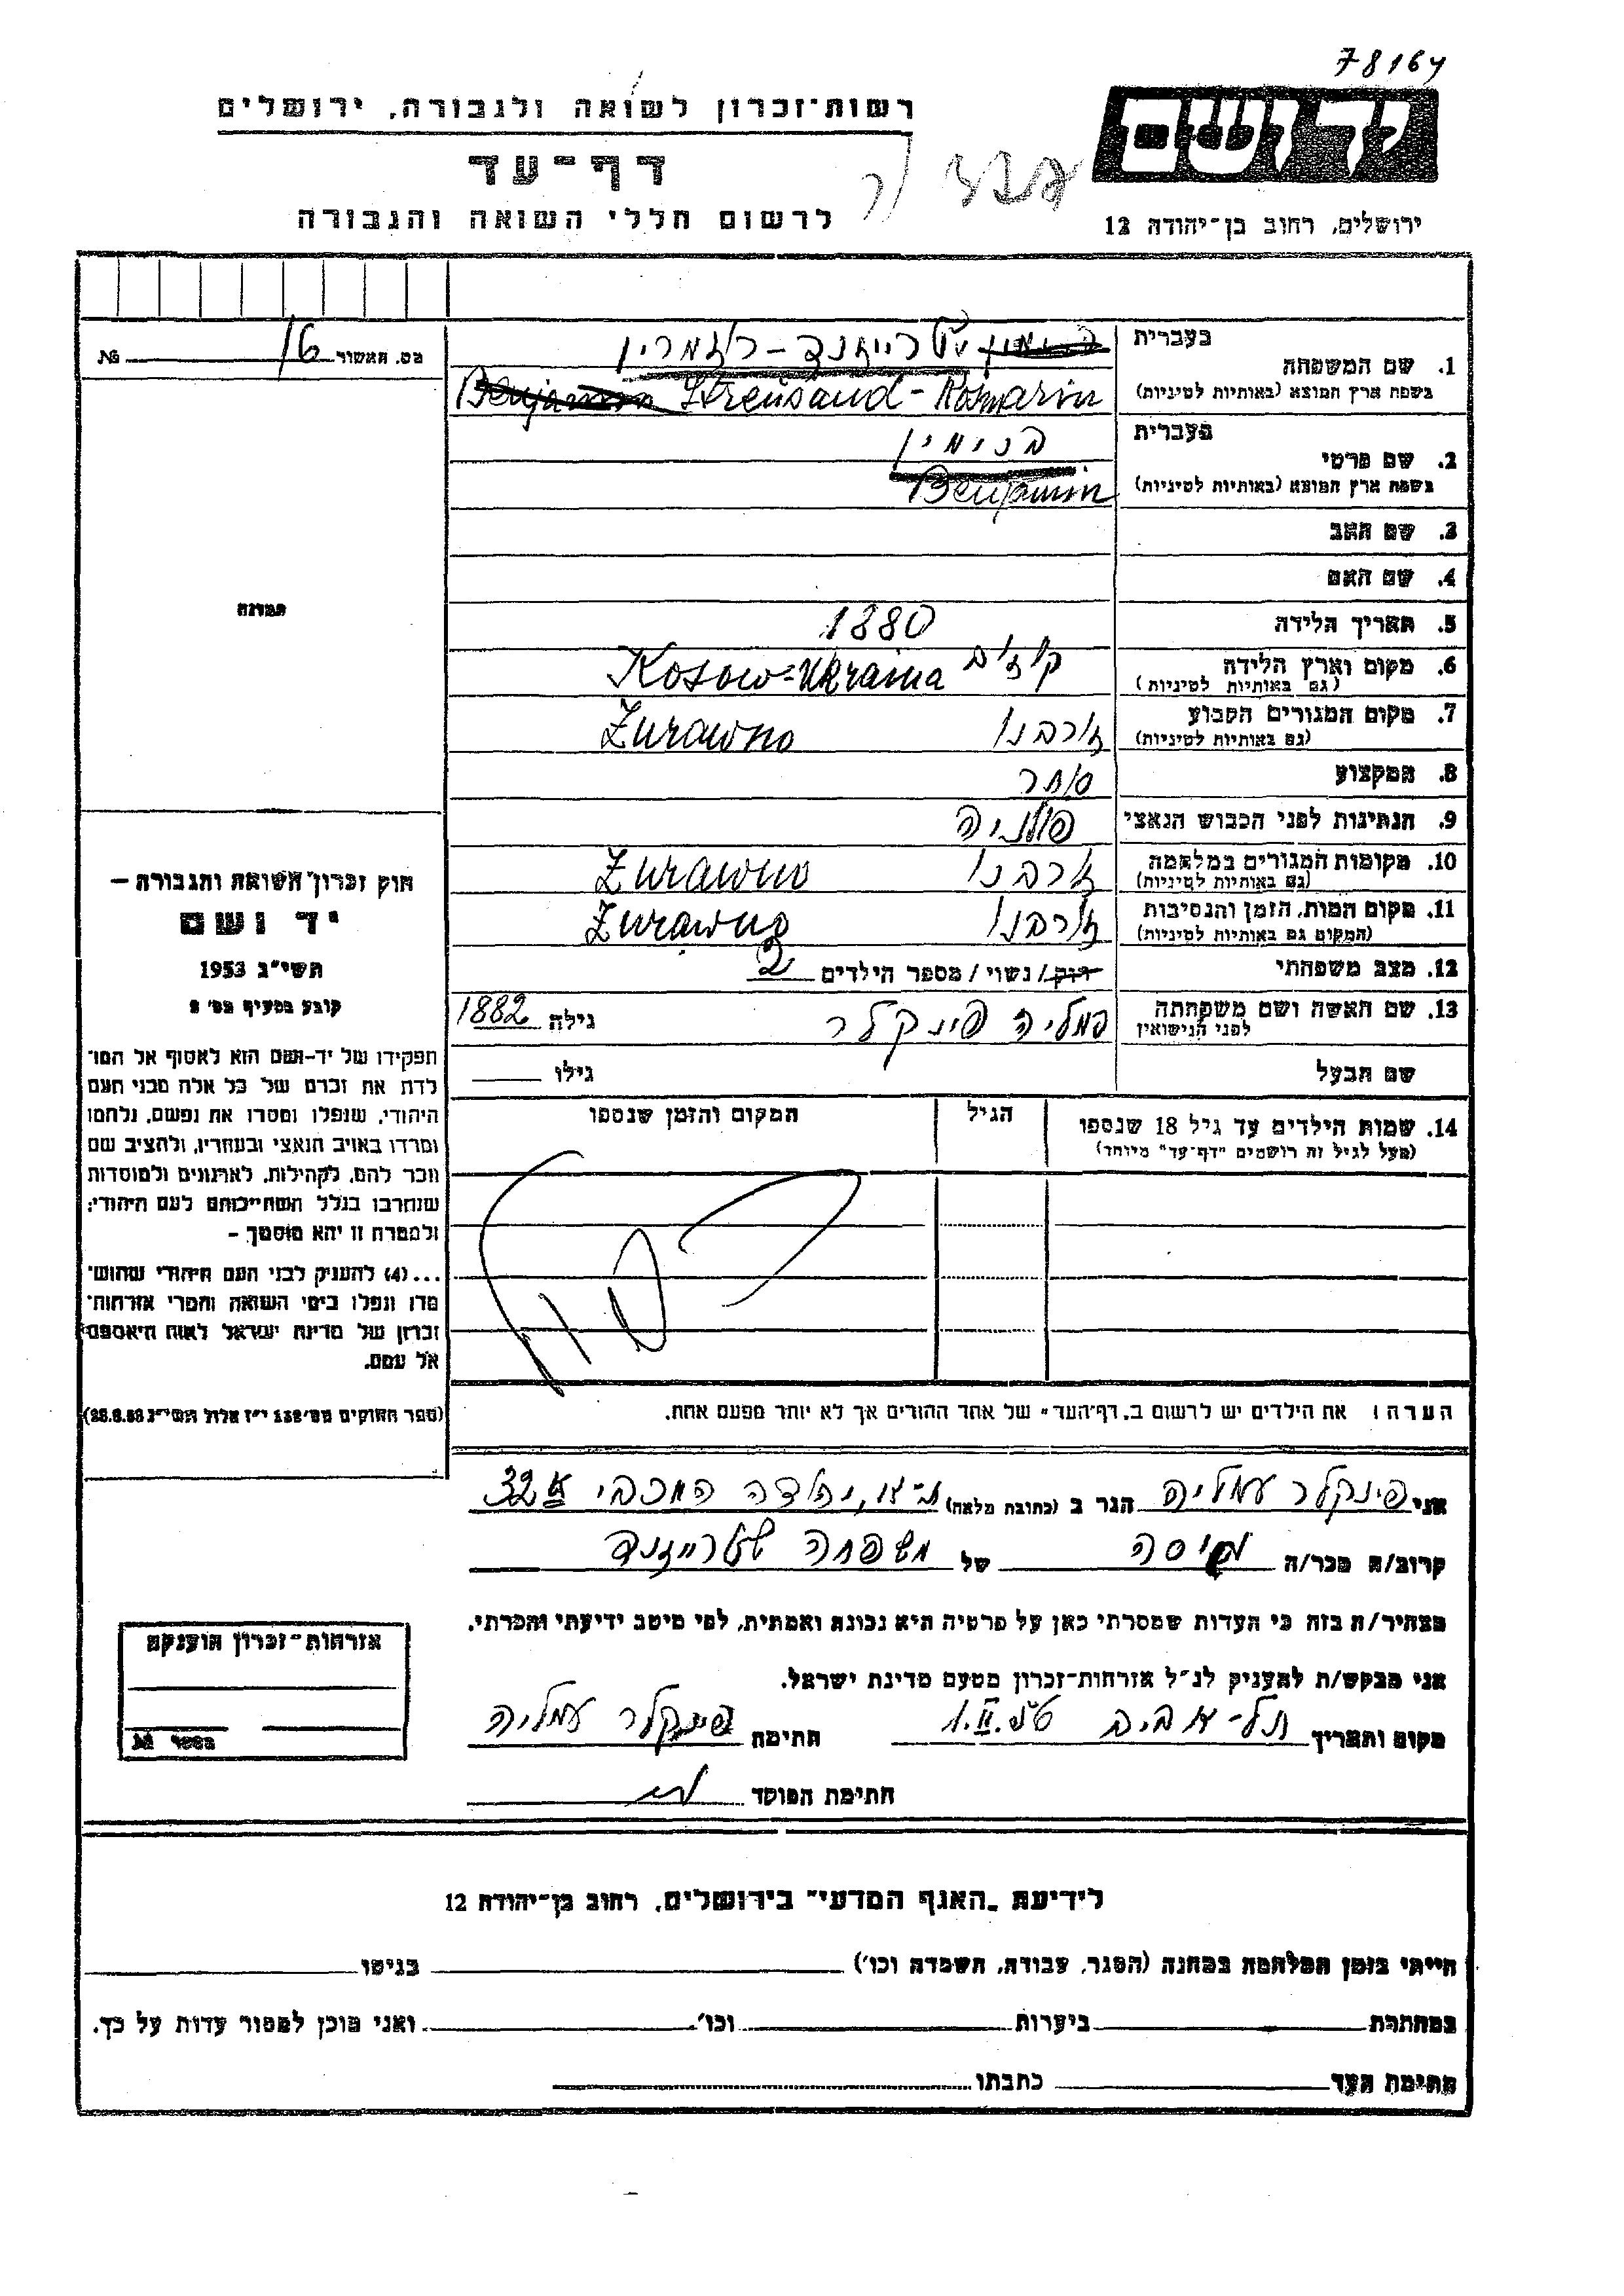 78164
רשות־זכרון לשואה ולגבורה, ירושלים
דף־עד
לרשום חללי השואה והגבורה
יד ושם
ירושלים, רחוב בן־יהודה 12
מס. האשור 16 №
תמונה
חוק זכרון השואה והגבורה —
יד ושם
תשי״ג 1953
קובע בסעיף מס׳ 2
תפקידו של יד־ושם הוא לאסוף אל המו־
לדת את זכרם של כל אלה מבני העם
היהודי, שנפלו ומסרו את נפשם, נלחמו
ומרדו באויב הנאצי ובעוזריו, ולהציב שם
וזכר להם, לקהילות, לארגונים ולמוסדות
שנחרבו בגלל השתייכותם לעם היהודי;
ולמטרה זו יהא מוסמך —
...(4) להעניק לבני העם היהודי שהוש־
מדו ונפלו בימי השואה והמרי אזרחות־
זכרון של מדינת ישראל לאות היאספם
אל עמם.
(ספר החוקים מס׳ 132 י״ז אלול תשי״ג 28.8.53)
בעברית
1. שם המשפחה שטרייזנד - רוזמרין
בשפת ארץ המוצא (באותיות לטיניות) Benjamin Streusand - Rosmarin
בעברית
2. שם פרטי בנימין
בשפת ארץ המוצא (באותיות לטיניות) Benjamin
3. שם האב
4. שם האם
5. תאריך הלידה 1880
6. מקום וארץ הלידה Kosow-Ukraina
(גם באותיות לטיניות)
7. מקום המגורים הקבוע זורבנו Żurawno
(גם באותיות לטיניות)
8. המקצוע סוחר
9. הנתינות לפני הכבוש הנאצי פולניה
10. מקומות המגורים במלחמה זורבנו Żurawno
(גם באותיות לטיניות)
11. מקום המות, הזמן והנסיבות זורבנו Żurawno
(המקום גם באותיות לטיניות)
12. מצב משפחתי רוק / נשוי / מספר הילדים 2
13. שם האשה ושם משפחתה לפני הנישואין עמליה פינקלר גילה 1882
שם הבעל גילו
14. שמות הילדים עד גיל 18 שנספו הגיל המקום והזמן שנספו
(מעל לגיל זה רושמים "דף־עד" מיוחד)
הערה: את הילדים יש לרשום ב„דף־העד" של אחד ההורים אך לא יותר מפעם אחת.
אני פינקלר עמליה הגר ב (כתובת מלאה) ת״א, יהודה המכבי 32
קרוב/ה מכר/ה גיסה של משפחה שטרייזנד
מצהיר/ה בזה כי העדות שמסרתי כאן על פרטיה היא נכונה ואמתית, לפי מיטב ידיעתי והכרתי.
אני מבקש/ת להעניק לנ״ל אזרחות־זכרון מטעם מדינת ישראל.
מקום ותאריך תל-אביב 1.II חתימה פינקלר עמליה
חתימת הפוקד
אזרחות־זכרון הוענקה
מספר №
לידיעת „האגף המדעי" בירושלים, רחוב בן־יהודה 12
הייתי בזמן המלחמה במחנה (הסגר, עבודה, השמדה וכו׳) בגיטו
במחתרת ביערות וכו׳ ואני מוכן למסור עדות על כך.
חתימת העד כתבתו